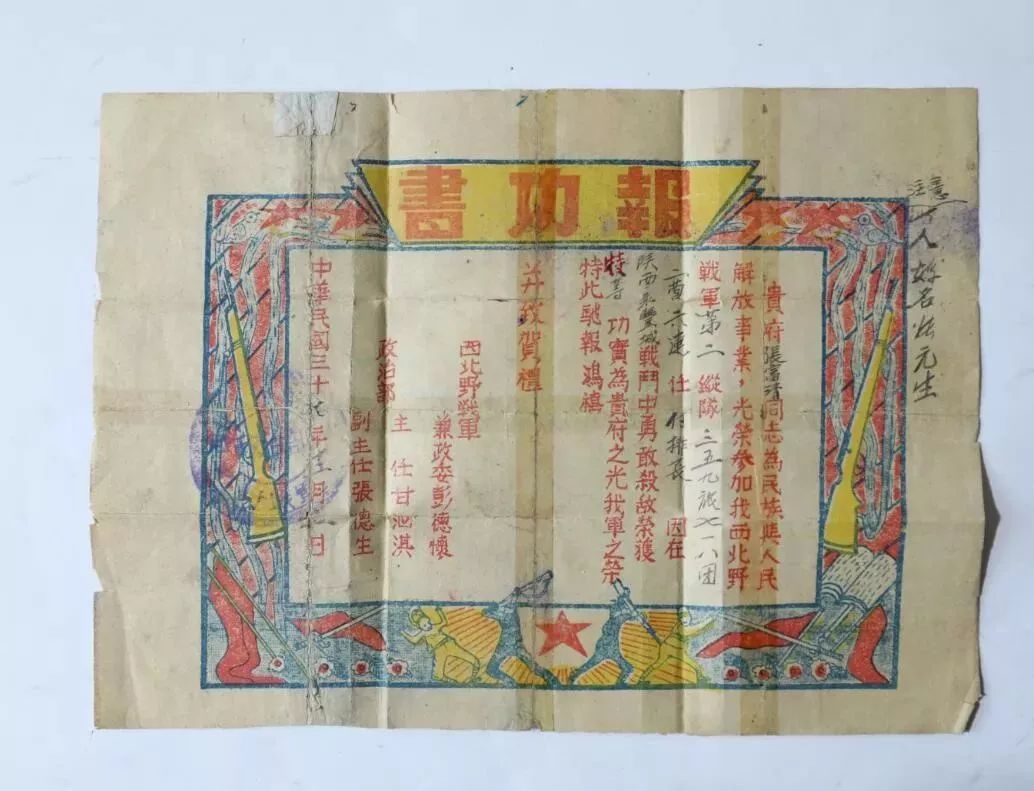 報功書
貴府張富清同志為民族與人民
解放事業，光榮參加我西北野
戰軍第二縱隊三五九旅七一八團
二營六連任付排長因在
陝西永豐城戰鬥中勇敢殺敵榮獲
特等功實為貴府之光我軍之榮
特此馳報鴻禧
并致賀禮
西北野戰軍
兼政委彭德懷
政治部
主任甘泗淇
副主任張德生
中華民國三十七年月日
注意
人姓名
元生